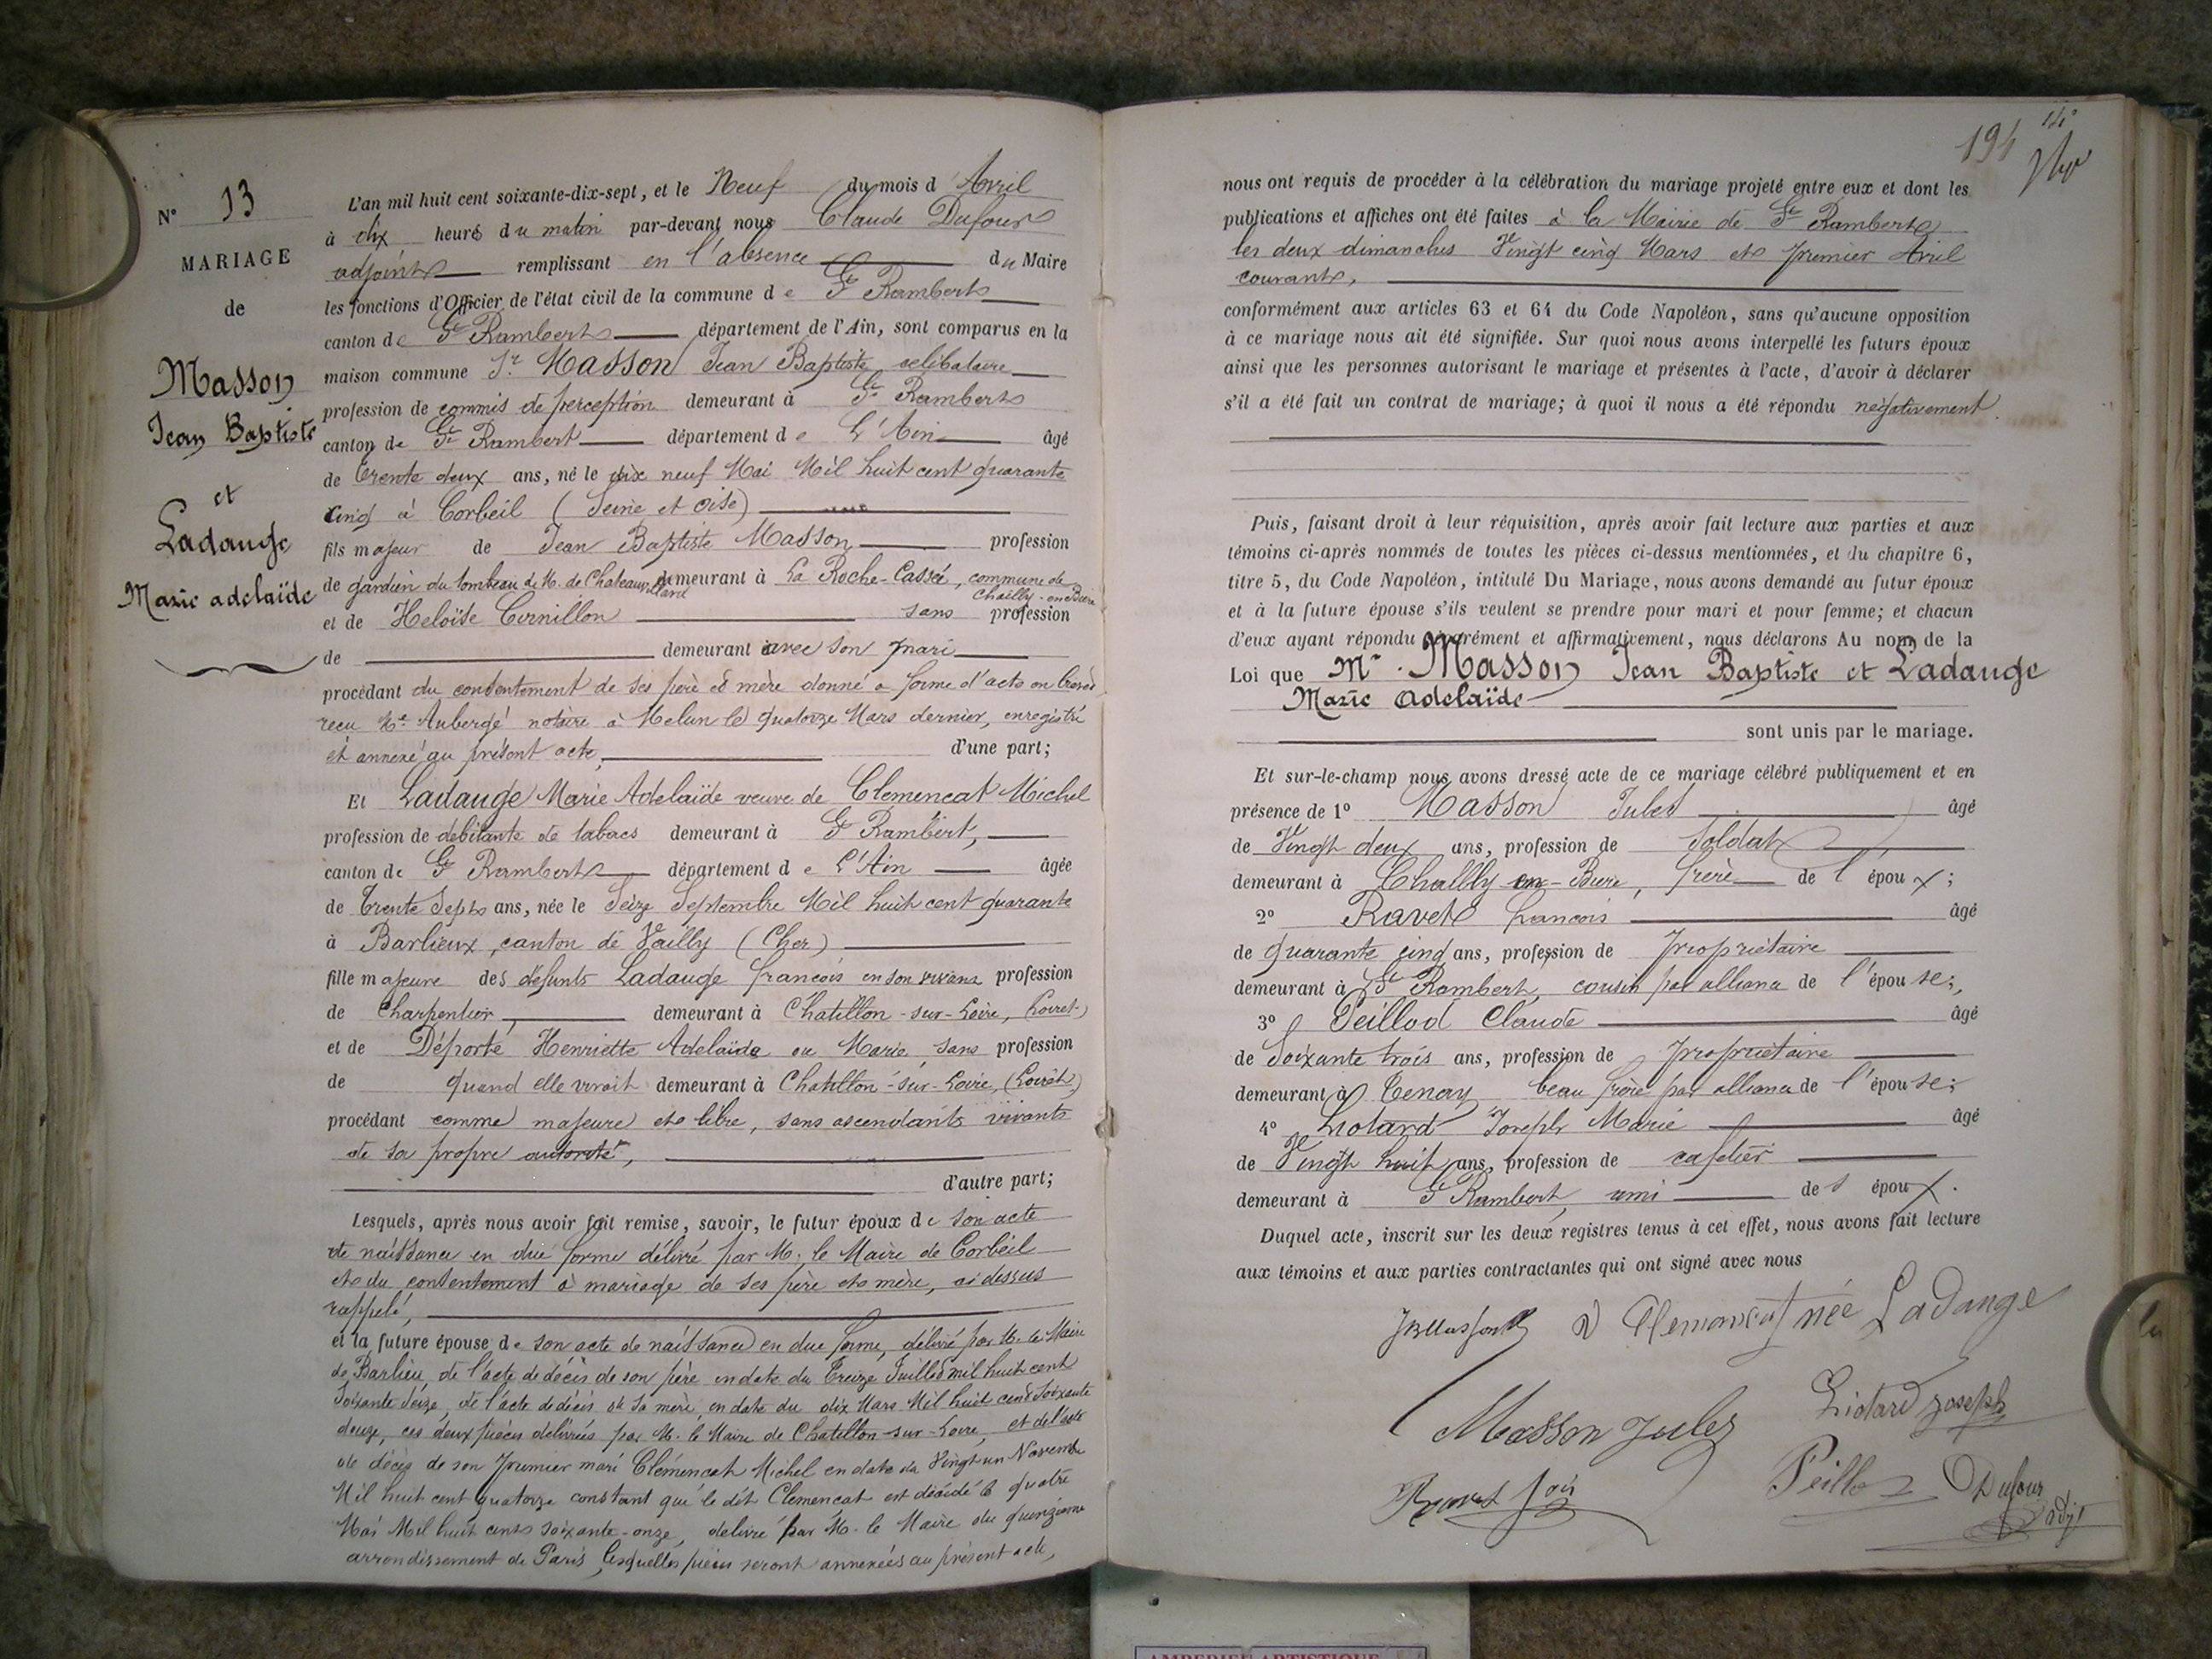 N° 13
MARIAGE
de
Masson
Jean Baptiste
et
Ladauge
Marie adelaïde
L'an mil huit cent soixante-dix-sept, et le Neuf du mois d'Avril
à dix heures du matin par-devant nous Claude Dufour
adjoint remplissant en l'absence du Maire
les fonctions d'Officier de l'état civil de la commune de St Rambert
canton de St Rambert département de l'Ain, sont comparus en la
maison commune Sr. Masson Jean Baptiste celibataire
profession de commis de perception demeurant à St Rambert
canton de St Rambert département de L'Ain âgé
de trente deux ans, né le dix neuf Mai Mil huit cent quarante
cinq à Corbeil (Seine et Oise)
fils majeur de Jean Baptiste Masson profession
de gardien du tombeau de M. de Chateau demeurant à La Roche-Cassée, commune de
Chailly-en-Biere
et de Heloïse Cornillon sans profession
de demeurant avec son mari
procédant du consentement de ses père et mère donné a forme d'acte en brevet
reçu Me Aubergé notaire à Melun le quatorze Mars dernier, enregistré
et annexé au présent acte, d'une part;
Et Ladauge Marie Adelaïde veuve de Clemencat Michel
profession de debitante de tabacs demeurant à St Rambert,
canton de St Rambert département de L'Ain âgée
de Trente Sept ans, née le Seize Septembre Mil huit cent quarante
à Barlieux, canton de Vailly (Cher)
fille majeure des défunts Ladauge françois en son vivant profession
de Charpentier, demeurant à Châtillon-sur-Loire, Loiret)
et de Déporté Henriette Adelaïde ou Marie, sans profession
de quand elle vivait demeurant à Chatillon-sur-Loire, (Loiret)
procédant comme majeure et libre, sans ascendants vivants
de sa propre autorité,
d'autre part;
Lesquels, après nous avoir fait remise, savoir, le futur époux de son acte
de naissance en due forme délivré par M. le Maire de Corbeil
et du consentement à mariage de ses père et mère, ci dessus
rappelé,
et la future épouse de son acte de naissance en due forme, délivré par M. le Maire
de Barlieu, de l'acte de décès de son père en date du Treize Juillet mil huit cent
Soixante Seize, de l'acte de décès de sa mère, en date du dix Mars Mil huit cent Soixante
douze, ces deux pièces délivrées par M. le Maire de Chatillon-sur-Loire, et de l'acte
de décès de son premier mari Clémencat Michel en date du Vingt un Novembre
Mil huit cent quatorze constant que le dit Clemencat est décédé le quatre
Mai Mil huit cent soixante-onze, délivré par M. le Maire du quinzième
arrondissement de Paris, lesquelles pièces seront annexées au présent acte,
194
nous ont requis de procéder à la célébration du mariage projeté entre eux et dont les
publications et affiches ont été faites à la Mairie de St Rambert
les deux dimanches Vingt cinq Mars et premier Avril
courant,
conformément aux articles 63 et 64 du Code Napoléon, sans qu'aucune opposition
à ce mariage nous ait été signifiée. Sur quoi nous avons interpellé les futurs époux
ainsi que les personnes autorisant le mariage et présentes à l'acte, d'avoir à déclarer
s'il a été fait un contrat de mariage; à quoi il nous a été répondu négativement.
Puis, faisant droit à leur réquisition, après avoir fait lecture aux parties et aux
témoins ci-après nommés de toutes les pièces ci-dessus mentionnées, et du chapitre 6,
titre 5, du Code Napoléon, intitulé Du Mariage, nous avons demandé au futur époux
et à la future épouse s'ils veulent se prendre pour mari et pour femme; et chacun
d'eux ayant répondu séparément et affirmativement, nous déclarons Au nom de la
Loi que Mr. Masson Jean Baptiste et Ladauge
Marie Adelaïde
sont unis par le mariage.
Et sur-le-champ nous avons dressé acte de ce mariage célébré publiquement et en
présence de 1° Masson Jules âgé
de Vingt deux ans, profession de Soldat
demeurant à Chailly en-Biere, frère de l'époux;
2° Ravet francois âgé
de quarante cinq ans, profession de Propriétaire
demeurant à St Rambert, cousin par alliance de l'épouse;
3° Peillod Claude âgé
de Soixante trois ans, profession de propriétaire
demeurant à Tenay beau frère par alliance de l'épouse;
4° Liotard Joseph Marie âgé
de Vingt huit ans, profession de cafetier
demeurant à St Rambert, ami des époux.
Duquel acte, inscrit sur les deux registres tenus à cet effet, nous avons fait lecture
aux témoins et aux parties contractantes qui ont signé avec nous
JBMasson Clemencat née Ladange
Masson Jules Liotard Joseph
Ravet fois Peillod Dufour
adjt
AMBERIEU ARTISTIQUE